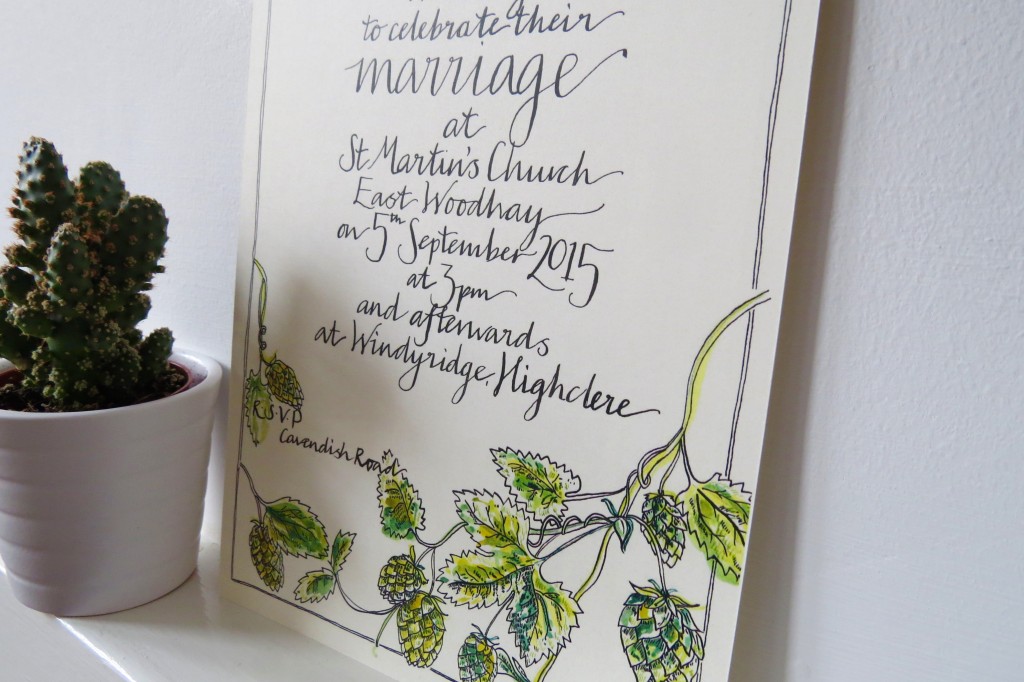 to celebrate their
marriage
at
St. Martin's Church
East Woodhay
on 5th September 2015
at 3pm
and afterwards
at Windyridge, Highclere
R.S.V.P
Cavendish Road